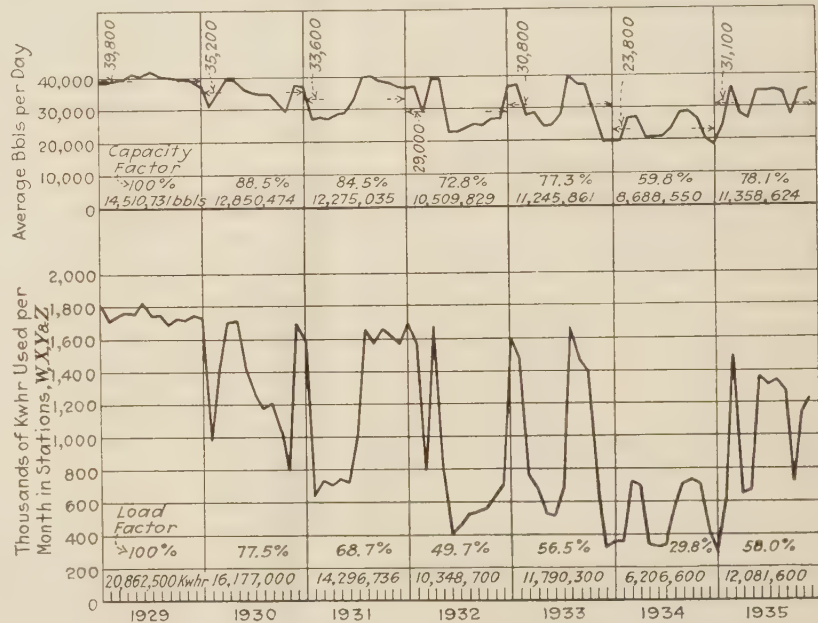 Average Bbls per Day
40,000
30,000
20,000
10,000
0
39,800
35,200
33,600
29,000
30,800
23,800
31,100
Capacity
Factor
100% 88.5% 84.5% 72.8% 77.3% 59.8% 78.1%
14,510,731 bbls 12,850,474 12,275,035 10,509,829 11,245,861 8,688,550 11,358,624
Thousands of Kwhr Used per
Month in Stations, W,X,Y&Z
2,000
1,800
1,600
1,400
1,200
1,000
800
600
400
200
0
Load
Factor
100% 77.5% 68.7% 49.7% 56.5% 29.8% 58.0%
20,862,500 Kwhr 16,177,000 14,296,736 10,348,700 11,790,300 6,206,600 12,081,600
1929 1930 1931 1932 1933 1934 1935